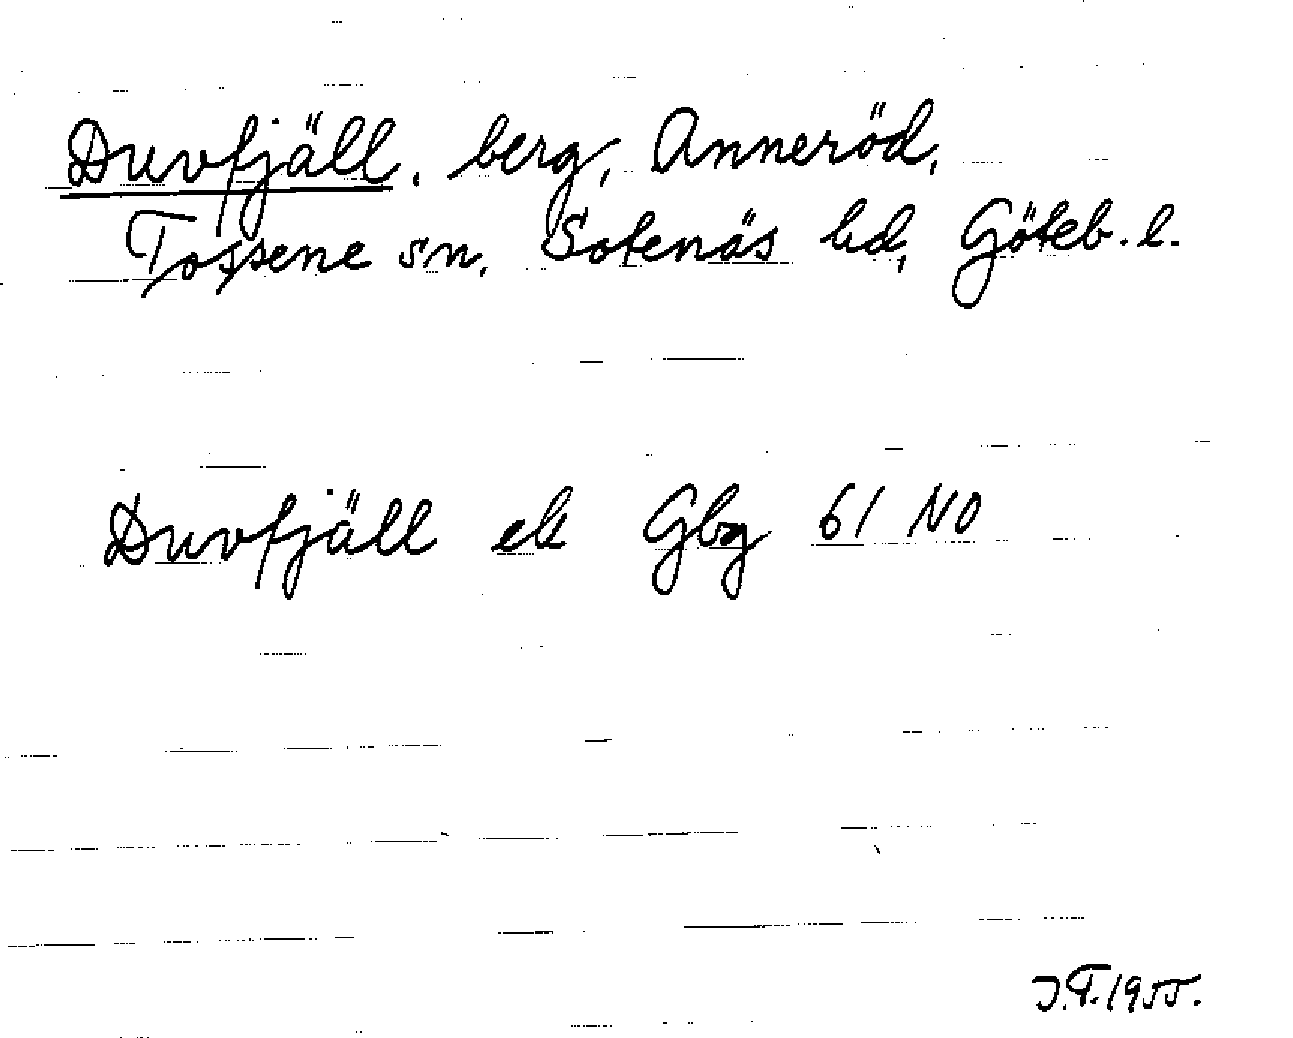 Duvfjäll, berg, Anneröd,
Tossene sn, Sotenäs hd, Göteb. l.
Duvfjäll ek Gbg 61 NO
J.T. 1955.